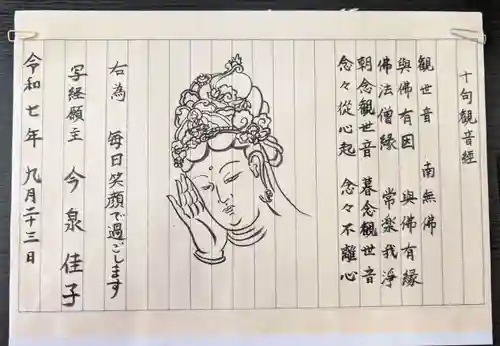 十句観音經
観世音 南無佛
與佛有因 與佛有縁
佛法僧縁 常楽我浄
朝念観世音 暮念観世音
念々從心起 念々不離心
右為 毎日笑顔で過ごします
写経願主 今泉佳子
令和七年 九月二十三日